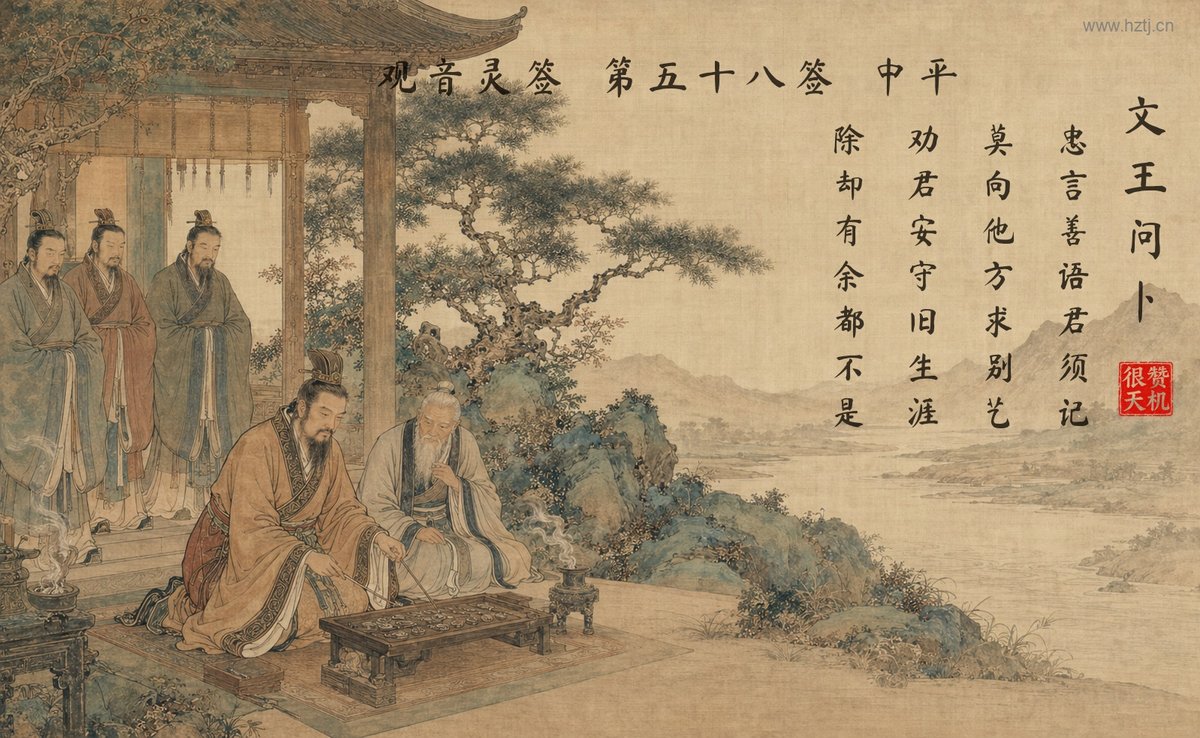 www.hztj.cn
观音灵签 第五十八签 中平
文王问卜
忠言善语君须记
莫向他方求别艺
劝君安守旧生涯
除却有余都不是
赞机
很天